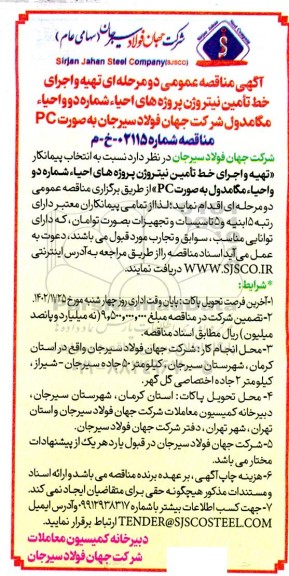 شرکت جهان فولاد سیرجان (سهامی عام)
Sirjan Jahan Steel Company(SJSCO)
آگهی مناقصه عمومی دو مرحله ای تهیه و اجرای
خط تامین نیتروژن پروژه های احیاء شماره دو و احیاء
مگامدول شرکت جهان فولاد سیرجان به صورت PC
مناقصه شماره ۰۲۱۱۵-خ-م
شرکت جهان فولاد سیرجان در نظر دارد نسبت به انتخاب پیمانکار
«تهیه و اجرای خط تأمین نیتروژن پروژه های احیاء شماره دو
و احیاء مگامدول به صورت PC» از طریق برگزاری مناقصه عمومی
دو مرحله ای اقدام نماید؛ لذا از تمامی پیمانکاران معتبر دارای
رتبه ۵ ابنیه و ۵ تاسیسات و تجهیزات بصورت توامان، که دارای
توانایی مناسب، سوابق و تجارب مورد قبول می باشند، دعوت به
عمل می آید اسناد مناقصه را از طریق مراجعه به آدرس اینترنتی
WWW.SJSCO.IR دریافت نمایند.
*شرایط:
۱-آخرین فرصت تحویل پاکات: پایان وقت اداری روز چهار شنبه مورخ ۱۴۰۲/۱۱/۲۵.
۲-تضمین شرکت در مناقصه مبلغ ۹,۵۰۰,۰۰۰,۰۰۰ (نه میلیارد و پانصد
میلیون) ریال مطابق اسناد مناقصه.
۳-محل انجام کار: شرکت جهان فولاد سیرجان واقع در استان
کرمان، شهرستان سیرجان، کیلومتر ۵۰ جاده سیرجان - شیراز،
کیلومتر ۲ جاده اختصاصی گل گهر.
۴- محل تحویل پاکات: استان کرمان، شهرستان سیرجان،
دبیرخانه کمیسیون معاملات شرکت جهان فولاد سیرجان و استان
تهران، شهر تهران، دفتر شرکت جهان فولاد سیرجان.
۵-شرکت جهان فولاد سیرجان در قبول یا رد هر یک از پیشنهادات
مختار می باشد.
۶-هزینه چاپ آگهی، بر عهده برنده مناقصه می باشد و ارائه اسناد
و مستندات مذکور هیچگونه حقی برای متقاضیان ایجاد نمی کند.
۷-جهت کسب اطلاعات بیشتر با شماره ۰۹۹۱۲۹۳۸۳۱۷ و آدرس ایمیل
TENDER@SJSCOSTEEL.COM ارتباط برقرار نمایید.
دبیرخانه کمیسیون معاملات
شرکت جهان فولاد سیرجان